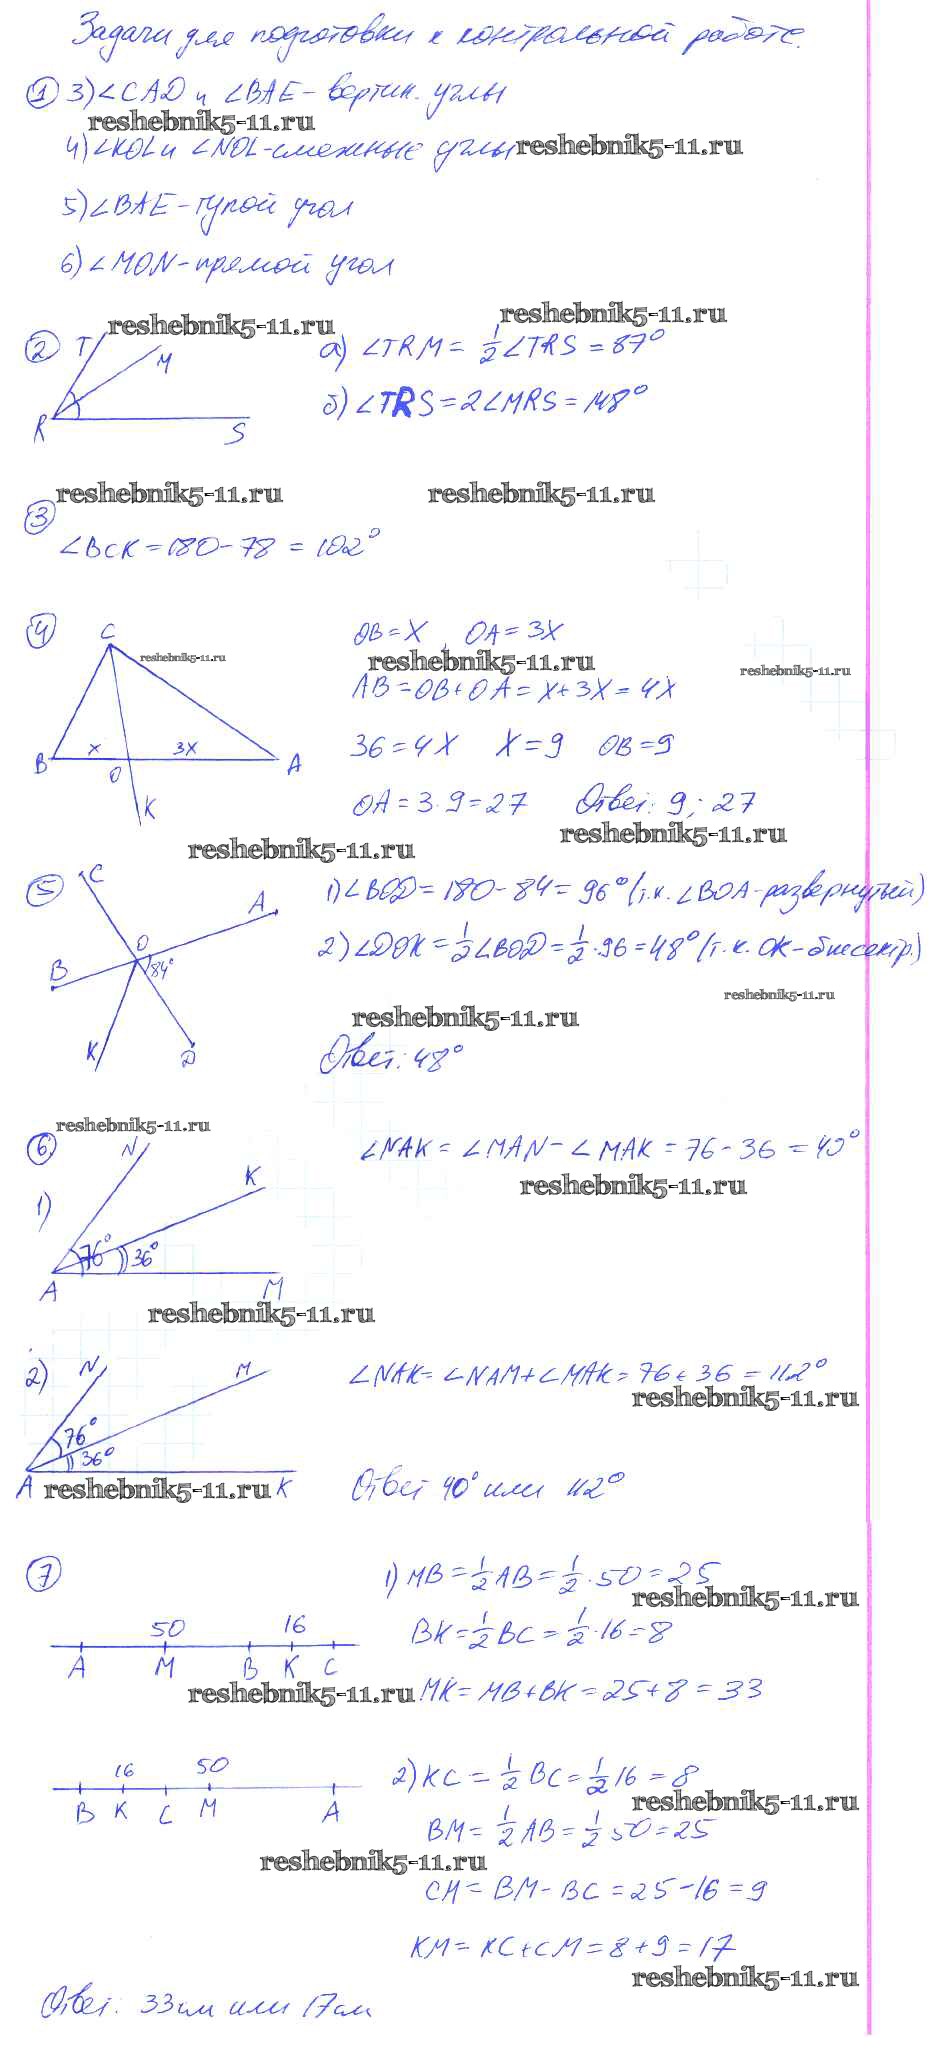 Задачи для подготовки к контрольной работе.
① 3) ∠CAD и ∠BAE - вертик. углы
reshebnik5-11.ru
4) ∠KOL и ∠NOL - смежные углы reshebnik5-11.ru
5) ∠BAE - тупой угол
6) ∠MON - прямой угол
reshebnik5-11.ru reshebnik5-11.ru
② T M R S
а) ∠TRM = 1/2 ∠TRS = 87°
б) ∠TRS = 2∠MRS = 148°
reshebnik5-11.ru reshebnik5-11.ru
③
∠BCK = 180 - 78 = 102°
④ C B x O 3x A K
reshebnik5-11.ru
OB = x, OA = 3x
reshebnik5-11.ru reshebnik5-11.ru
AB = OB + OA = x + 3x = 4x
36 = 4x x = 9 OB = 9
OA = 3 · 9 = 27 Ответ: 9; 27
reshebnik5-11.ru reshebnik5-11.ru
⑤ C A O B 84° K D
1) ∠BOD = 180 - 84 = 96° (т.к. ∠BOA - развернутый)
2) ∠DOK = 1/2 ∠BOD = 1/2 · 96 = 48° (т.к. OK - биссектр.)
reshebnik5-11.ru
reshebnik5-11.ru
Ответ: 48°
reshebnik5-11.ru
⑥
1) N K 76° 36° A M
∠NAK = ∠MAN - ∠MAK = 76 - 36 = 40°
reshebnik5-11.ru
reshebnik5-11.ru
2) N M 76° 36° A K
∠NAK = ∠NAM + ∠MAK = 76 + 36 = 112°
reshebnik5-11.ru
reshebnik5-11.ru
Ответ 40° или 112°
⑦
50 16
A M B K C
1) MB = 1/2 AB = 1/2 · 50 = 25
reshebnik5-11.ru
BK = 1/2 BC = 1/2 · 16 = 8
reshebnik5-11.ru
MK = MB + BK = 25 + 8 = 33
16 50
B K C M A
2) KC = 1/2 BC = 1/2 16 = 8
reshebnik5-11.ru
BM = 1/2 AB = 1/2 50 = 25
reshebnik5-11.ru
CM = BM - BC = 25 - 16 = 9
KM = KC + CM = 8 + 9 = 17
reshebnik5-11.ru
Ответ: 33см или 17см